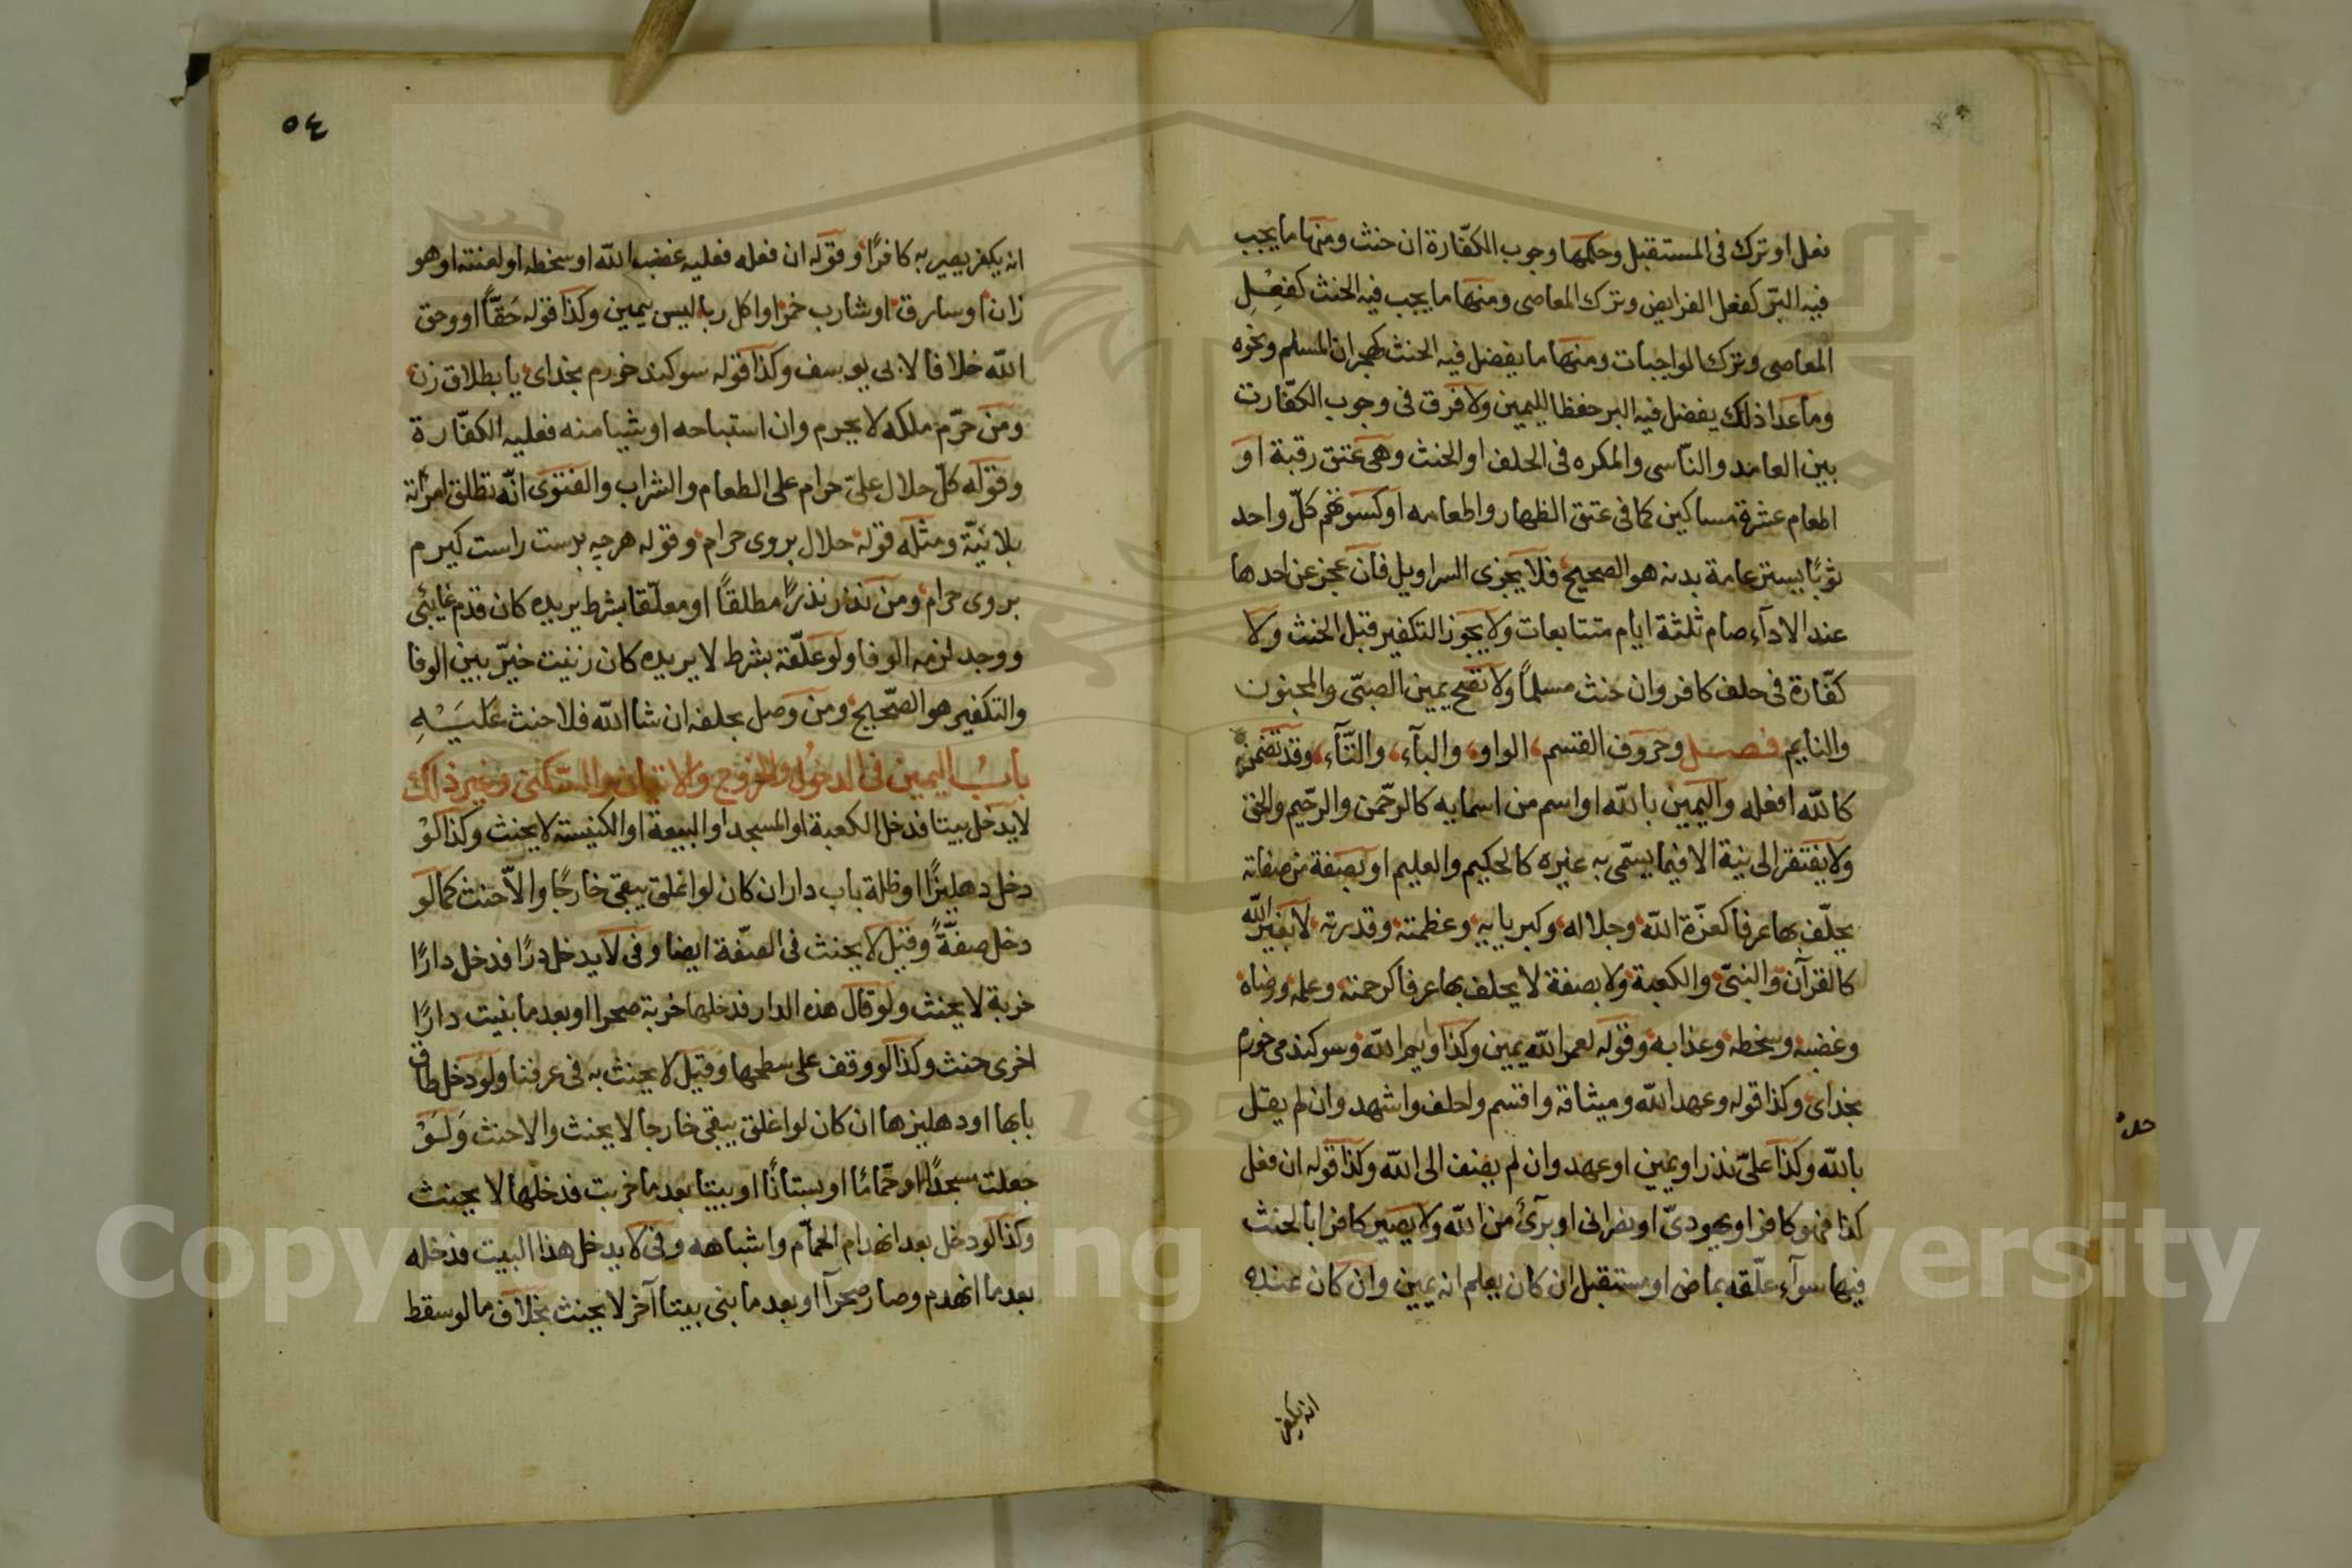 فعل او ترك فى المستقبل وحكمها وجوب الكفّارة ان حنث ومنها ما يجب
فيه البرّ كفعل الفرايض وترك المعاصى ومنها ما يجب فيه الحنث كفعل
المعاصى وترك الواجبات ومنها ما يفضل فيه الحنث كهجران المسلم ونحوه
وما عدا ذلك يفضل فيه البر حفظا لليمين ولا فرق فى وجوب الكفّارت
بين العامد والنّاسى والمكره فى الحلف او الحنث وهى عتق رقبة او
اطعام عشرة مساكين كما فى عتق الظهار واطعامه او كسوتهم كلّ واحد
ثوبًا يستر عامة بدنه هو الصحيح فلا يجزى السراويل فان عجز عن احدها
عند الادآء صام ثلثة ايام متتابعات ولا يجوز التكفير قبل الحنث ولا
كفّارة فى حلف كافر وان حنث مسلماً ولا تصح يمين الصبىّ والمجنون
والنايم فصل وحروف القسم الواو والبآء والتّآء وقد تضمن
كالله افعله واليمين بالله او اسم من اسمايه كالرحّمن والرحّيم والحق
ولا يفتقر الى نية الا فيما يسمّى به غيره كالحكيم والعليم او بصفة من صفاته
يحلّف بها عرفا كعزّة الله وجلاله وكبريايه وعظمته وقدرته لا بغير الله
كالقرآن والنبىّ والكعبة ولا بصفة لا يحلف بها عرفا كرحمته وعلمه ورضاه
وغضبه وسخطه وعذابه وقوله لعمر الله يمين وكذا وايم الله وسوكند مى خورم
بخداى وكذا قوله وعهد الله وميثاقه واقسم واحلف واشهد وان لم يقل
بالله وكذا علىّ نذر او يمين او عهد وان لم يضف الى الله وكذا قوله ان فعل
كذا فهو كافر او يهودىّ او نصرانى او برئ من الله ولا يصير كافرا بالحنث
فيها سوآء علّقه بماض او مستقبل ان كان يعلم انه يمين وان كان عنده
انه يكفر
٥٤
انه يكفر يصير به كافرًا وقوله ان فعله فعليه غضب الله او سخطه او لعنته او هو
زان او سارق او شارب خمر او اكل ربا ليس بيمين وكذا قوله حَقّاً او وحق
الله خلافا لابى يوسف وكذا قوله سوكند خورم بخداى يا بطلاق زن
ومن حرّم ملكه لا يحرم وان استباحه او شيا منه فعليه الكفّارة
وقوله كلّ حلال علىّ حرام على الطعام والشراب والفتوى انّه تطلق امرأته
بلا نيّة ومثله قوله حلال بروى حرام وقوله هرجه بدست راست كيرم
بروى حرام ومن نذر نذرًا مطلقاً او معلّقا بشرط يريده كان قدم غايبى
ووجد لزمه الوفا ولو علّقه بشرط لا يريده كان زنيت خيرّ بين الوفا
والتكفير هو الصّحيح ومن وصل بحلفه ان شا الله فلا حنث عَليَْهِ
بابُ اليمين فى الدخول والخروج والاتيان والسّكنى وغير ذلك
لا يدخل بيتا فدخل الكعبة او المسجد او البيعة او الكنيسة لا يحنث وكذا لوْ
دخل دهليزًا او ظلة باب دار ان كان لو اغلق يبقى خارجًا والاّ حنث كما لو
دخل صفّةً وقيل لا يحنث فى الصفّة ايضا وفى لا يدخل درًا فدخل دارًا
خربة لا يحنث ولو قال هذه الدار فدخلها خربة صحرا او بعد ما بنيت دارًا
اخرى حنث وكذا لو وقف على سطحها وقيل لا يحنث به فى عرفنا ولو دخل طاق
بابها او دهليزها ان كان لو اغلق يبقى خارجا لا يحنث والا حنث وَلَوْ
جعلت مسجدًا او حمّامًا او بستانًا او بيتا بعد ما خربت فدخلها لا يحنث
وكذا لو دخل بعد انهدام الحمّام واشباهه وفى لا يدخل هذا البيت فدخله
بعد ما انهدم وصار صحرآ او بعد ما بنى بيتا آخر لا يحنث بخلاف ما لو سقط
Copyright © King Saud University